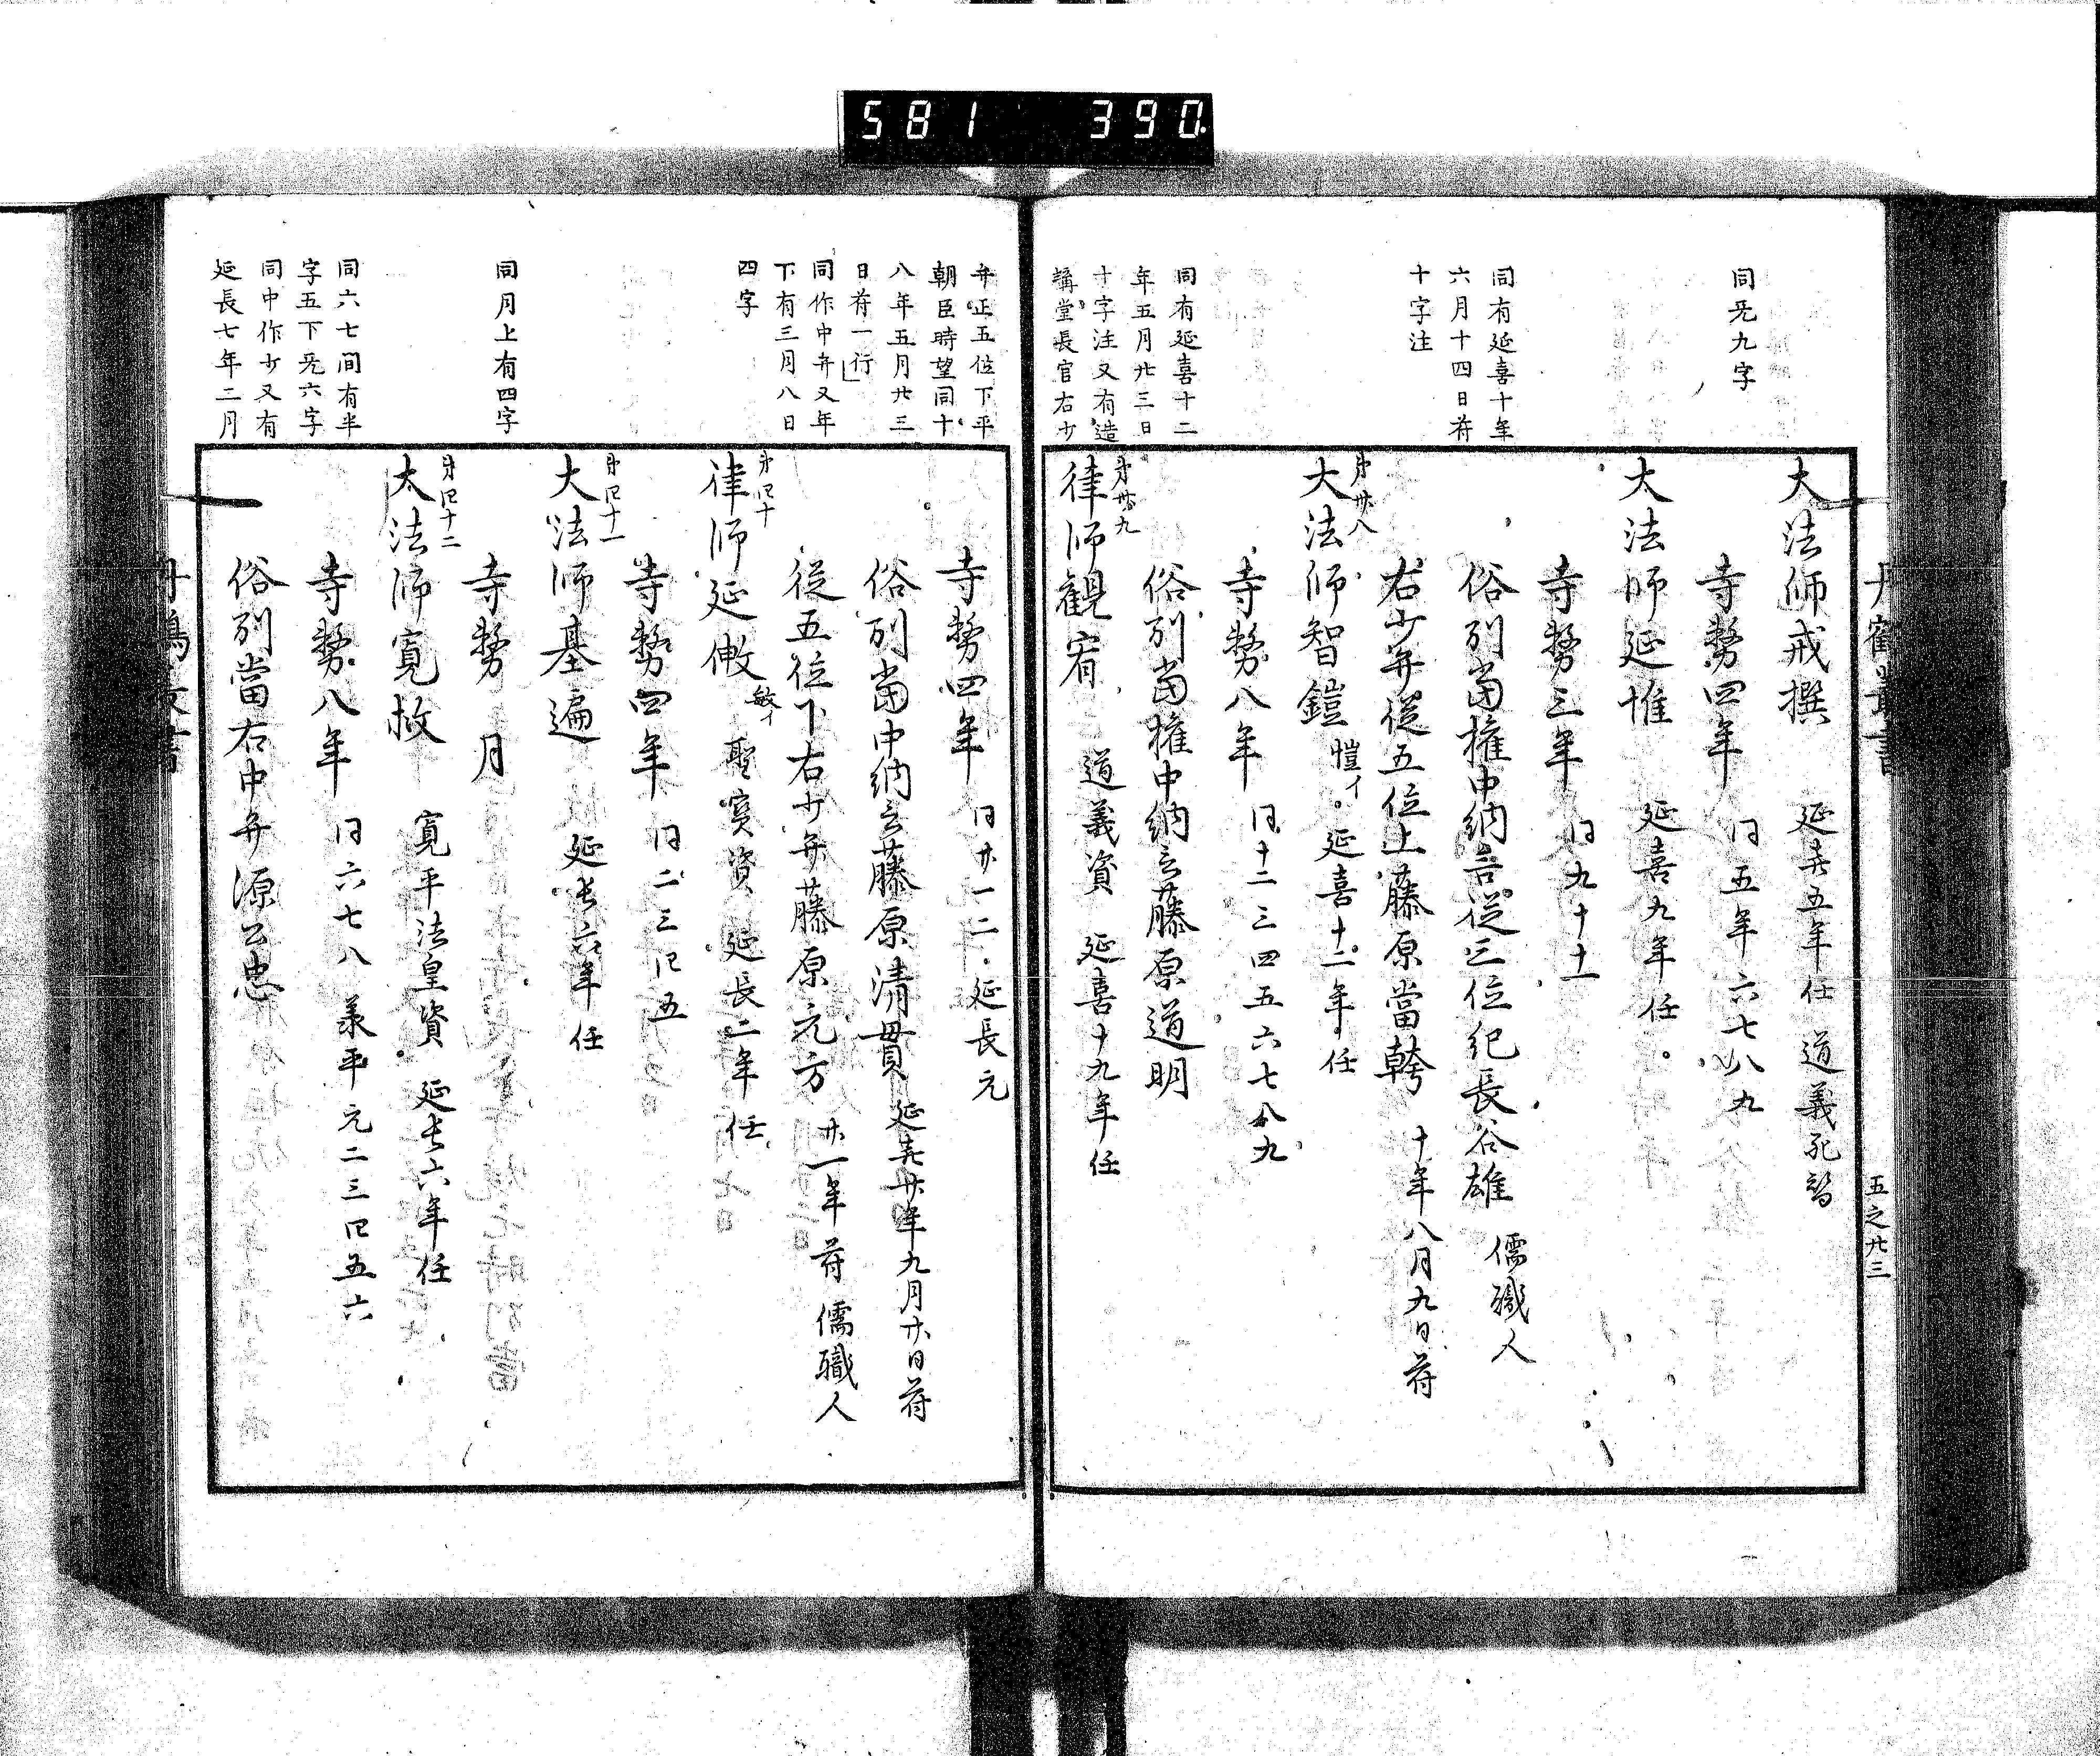 581 390
同旡九字
同有延喜十年
六月十四日符
十字注
同有延喜十二
年五月廿三日
十字注又有造
講堂長官右少
大法師戒撰 延喜五年任 道義死替
寺務四年 同五年六七八九
大法師延惟 延喜九年任
寺務三年 同九十十一
俗別當権中納言従三位紀長谷雄 儒職人
右少弁従五位上藤原當幹 十年八月九日符
第卅八
大法師智鎧 愷イ 延喜十二年任
寺務八年 同十二三四五六七八九
俗別當権中納言藤原道明
第卅九
律師観宥 道義資 延喜十九年任
丹鶴叢書
五之廿三
弁正五位下平
朝臣時望同十
八年五月廿三
日符一行
同作中弁又年
下有三月八日
四字
同月上有四字
同六七間有半
字五下旡六字
同中作少又有
延長七年二月
寺務四年 同廿一二延長元
俗別當中納言藤原清貫 延喜廿年九月廿日符
従五位下右少弁藤原元方 廿一年符 儒職人
第四十
律師延儌 敏イ 聖寳資 延長二年任
寺務四年 同二三四五
第四十一
大法師基遍 延長六年任
寺務 月
第四十二
大法師寛救 寛平法皇資 延長六年任
寺務八年 同六七八 承平元二三四五六
俗別當右中弁源公忠